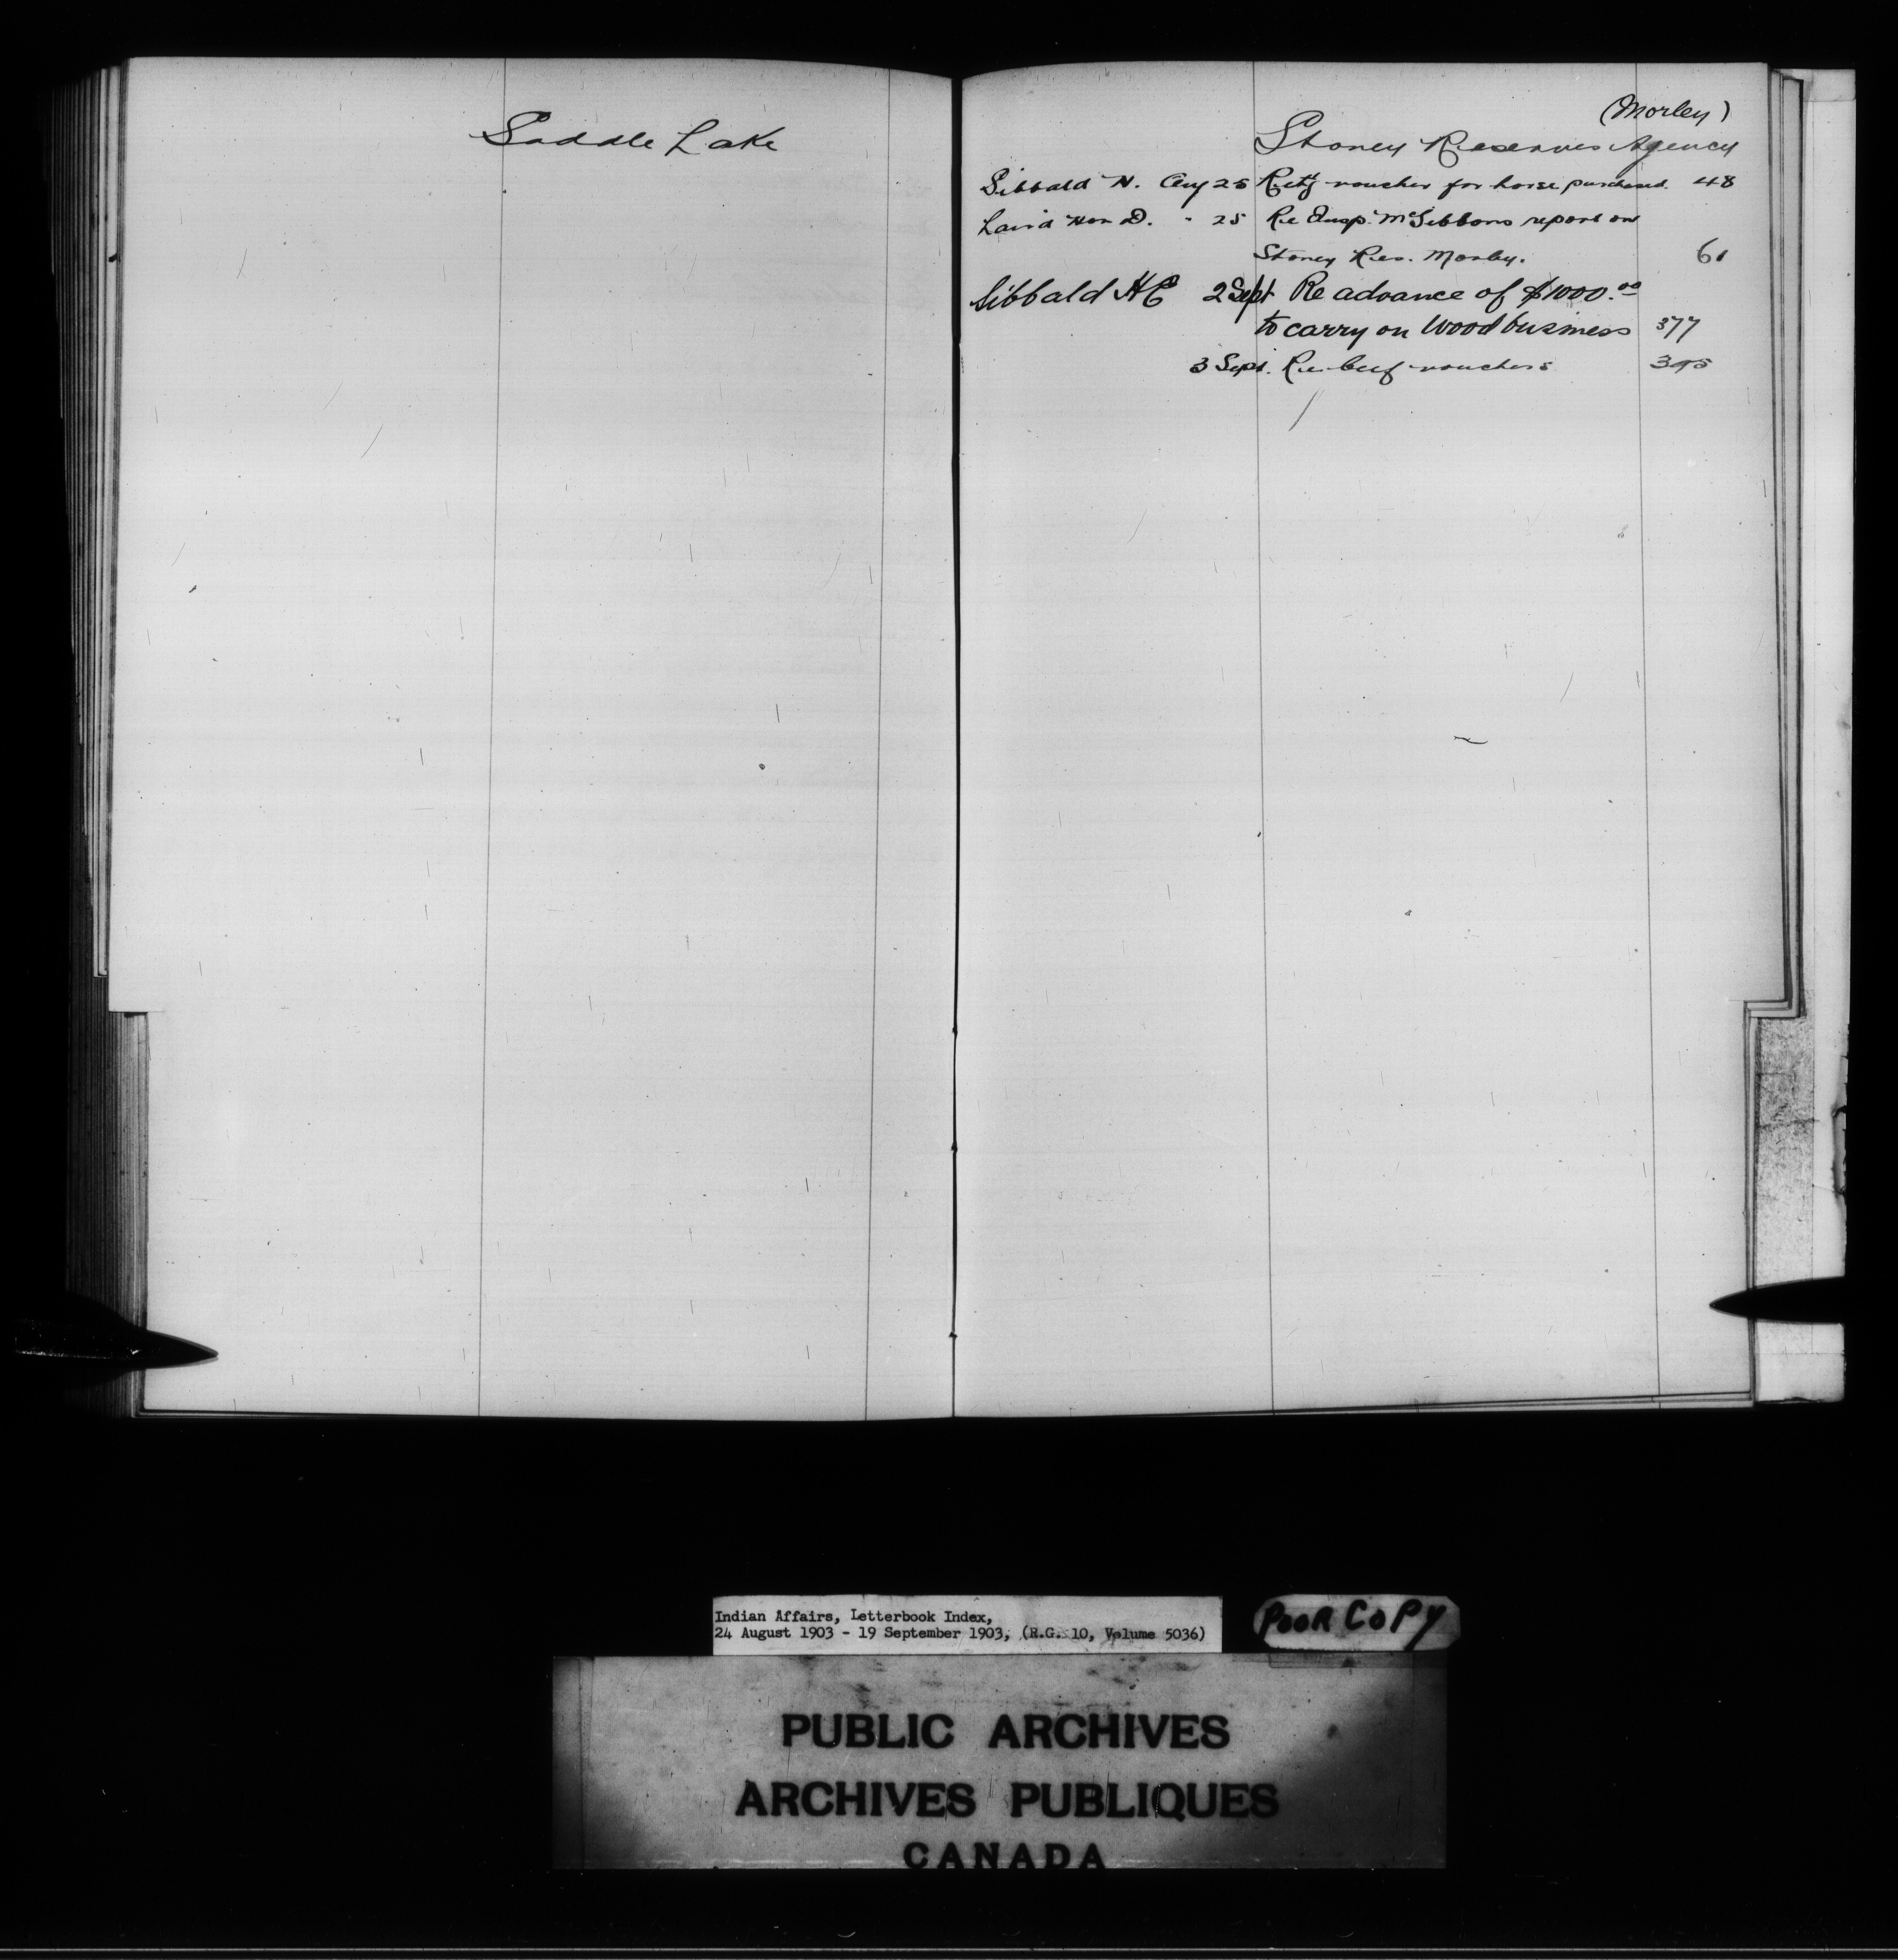 Saddle Lake
(Morley)
Stoney Reserves Agency
Sibbald N. Aug 25 Retg voucher for horse purchased. 48
Laird Hon D. " 25 Re Insp. McGibbons report on
Stoney Res. Morley. 61
Sibbald HE 2 Sept Re advance of $1000.00
to carry on Wood business 377
3 Sept. Re beef vouchers 395
Indian Affairs, Letterbook Index,
24 August 1903 - 19 September 1903, (R.G. 10, Volume 5036)
POOR COPY
PUBLIC ARCHIVES
ARCHIVES PUBLIQUES
CANADA